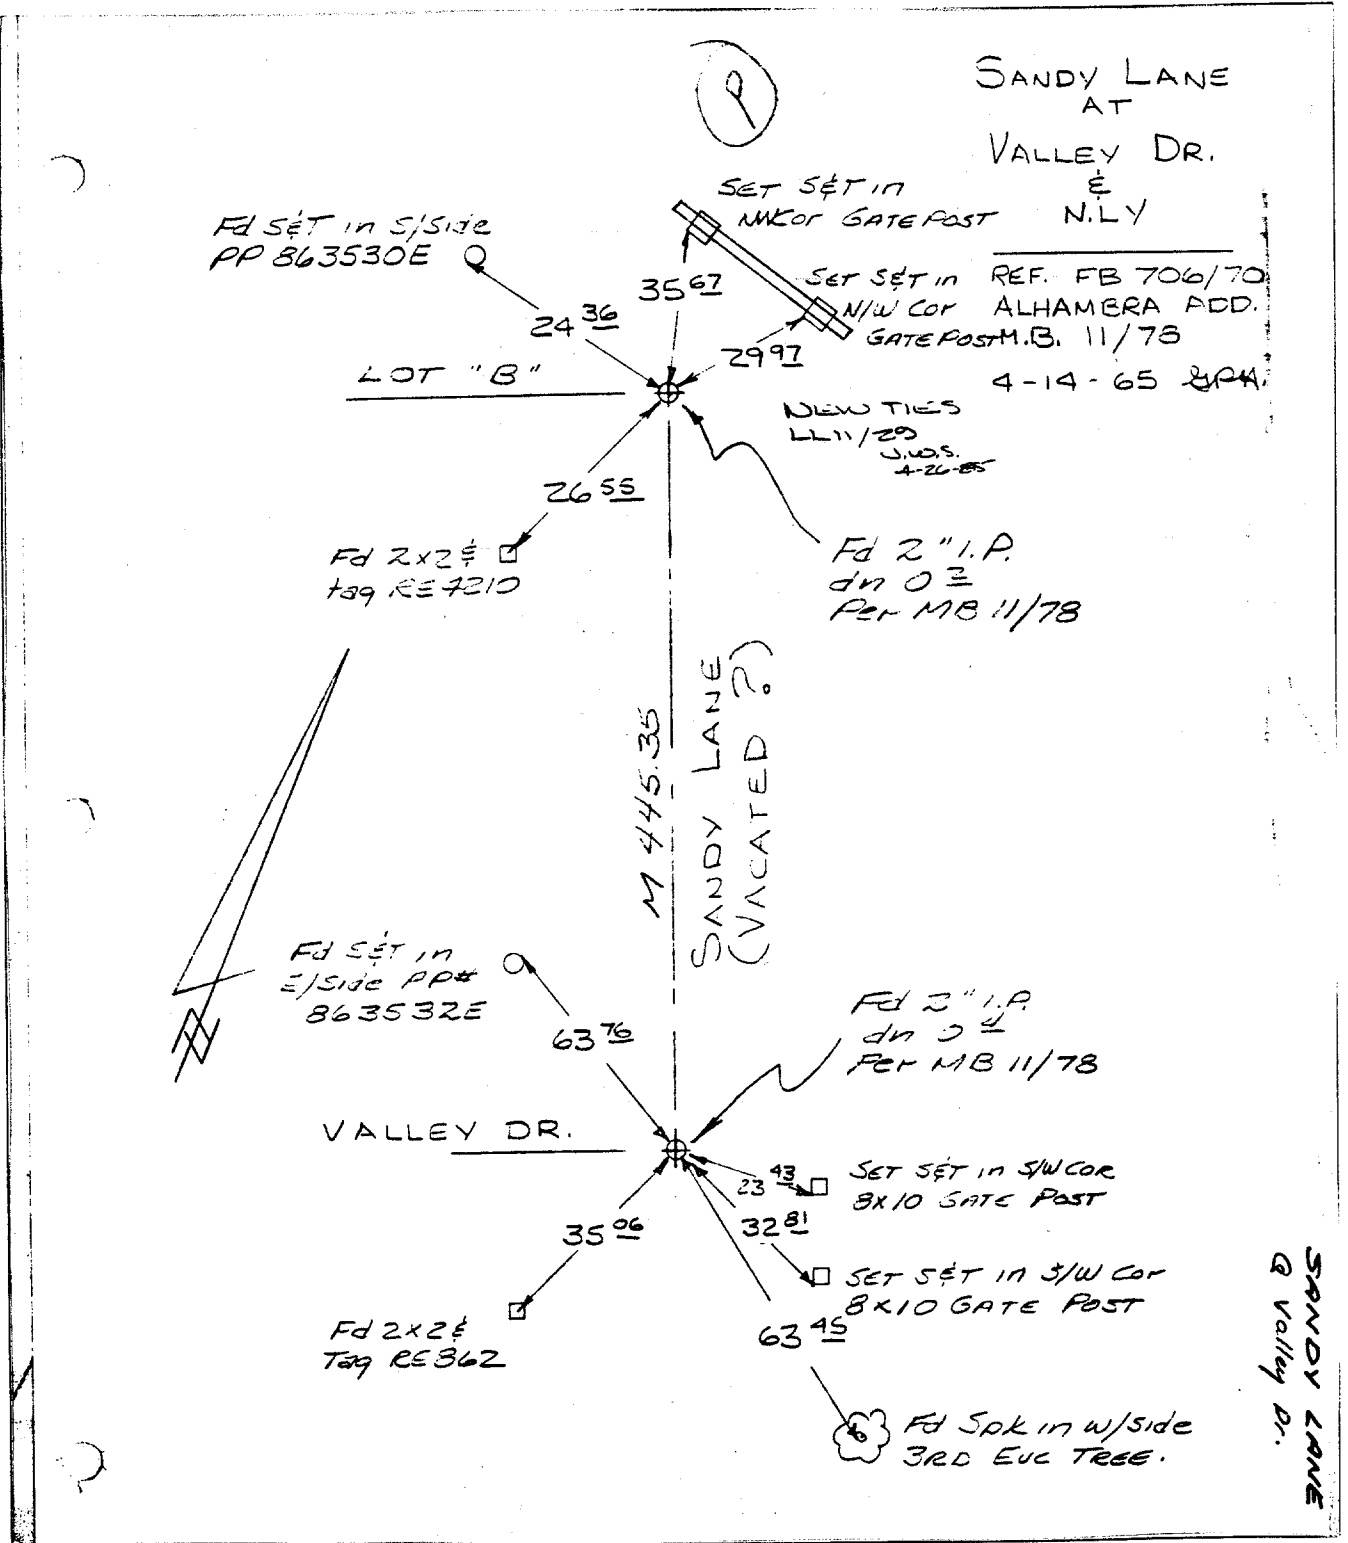 P
SANDY LANE
AT
VALLEY DR.
&
N.LY
REF. FB 706/70
ALHAMBRA ADD.
M.B. 11/78
4-14-65
SET S&T in
NW Cor GATE POST
SET S&T in
N/W Cor
GATE POST
Fd S&T in S/Side
PP 863530E
24 36
35 67
29 97
LOT "B"
NEW TIES
LL11/29
J.W.S.
4-26-85
26 55
Fd 2x2 &
tag RE 7210
Fd 2" I.P.
dn 0 3
Per MB 11/78
M 445.35
SANDY LANE
(VACATED ?)
Fd S&T in
E/Side PP#
863532E
63 76
Fd 2" I.P.
dn 0 4
Per MB 11/78
VALLEY DR.
23 43
SET S&T in S/W COR
8x10 GATE POST
32 81
SET S&T in S/W Cor
8x10 GATE POST
35 06
Fd 2x2 &
Tag RE 862
63 45
Fd Spk in W/Side
3RD EUC TREE.
SANDY LANE
@ Valley Dr.